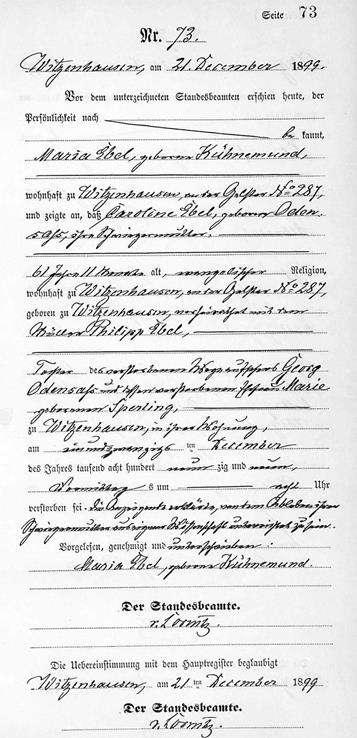 Seite 73
Nr. 73.
Witzenhausen, am 21. December 1899.
Vor dem unterzeichneten Standesbeamten erschien heute, der
Persönlichkeit nach
be kannt,
Maria Ebel, geborene Kühnemund,
wohnhaft zu Witzenhausen, an der Gelster No 287,
und zeigte an, daß Caroline Ebel, geborene Oden-
sass, ihre Schwiegermutter,
61 Jahre 11 Monate alt, evangelischer Religion,
wohnhaft zu Witzenhausen, an der Gelster No 287,
geboren zu Witzenhausen, verheirathet mit dem
Müller Philipp Ebel,
Tochter des verstorbenen Wegeaufsehers Georg
Odensass und dessen verstorbenen Ehefrau Marie
geborenen Sperling,
zu Witzenhausen, in ihrer Wohnung,
am einundzwanzigsten December
des Jahres tausend acht hundert neunzig und neun,
Vormittags um acht Uhr
verstorben sei. Die Anzeigende erklärte, von dem Ableben ihrer
Schwiegermutter aus eigener Wissenschaft unterrichtet zu sein.
Vorgelesen, genehmigt und unterschrieben:
Maria Ebel, geborene Kühnemund.
Der Standesbeamte.
Die Uebereinstimmung mit dem Hauptregister beglaubigt
Witzenhausen, am 21 ten December 1899
Der Standesbeamte.